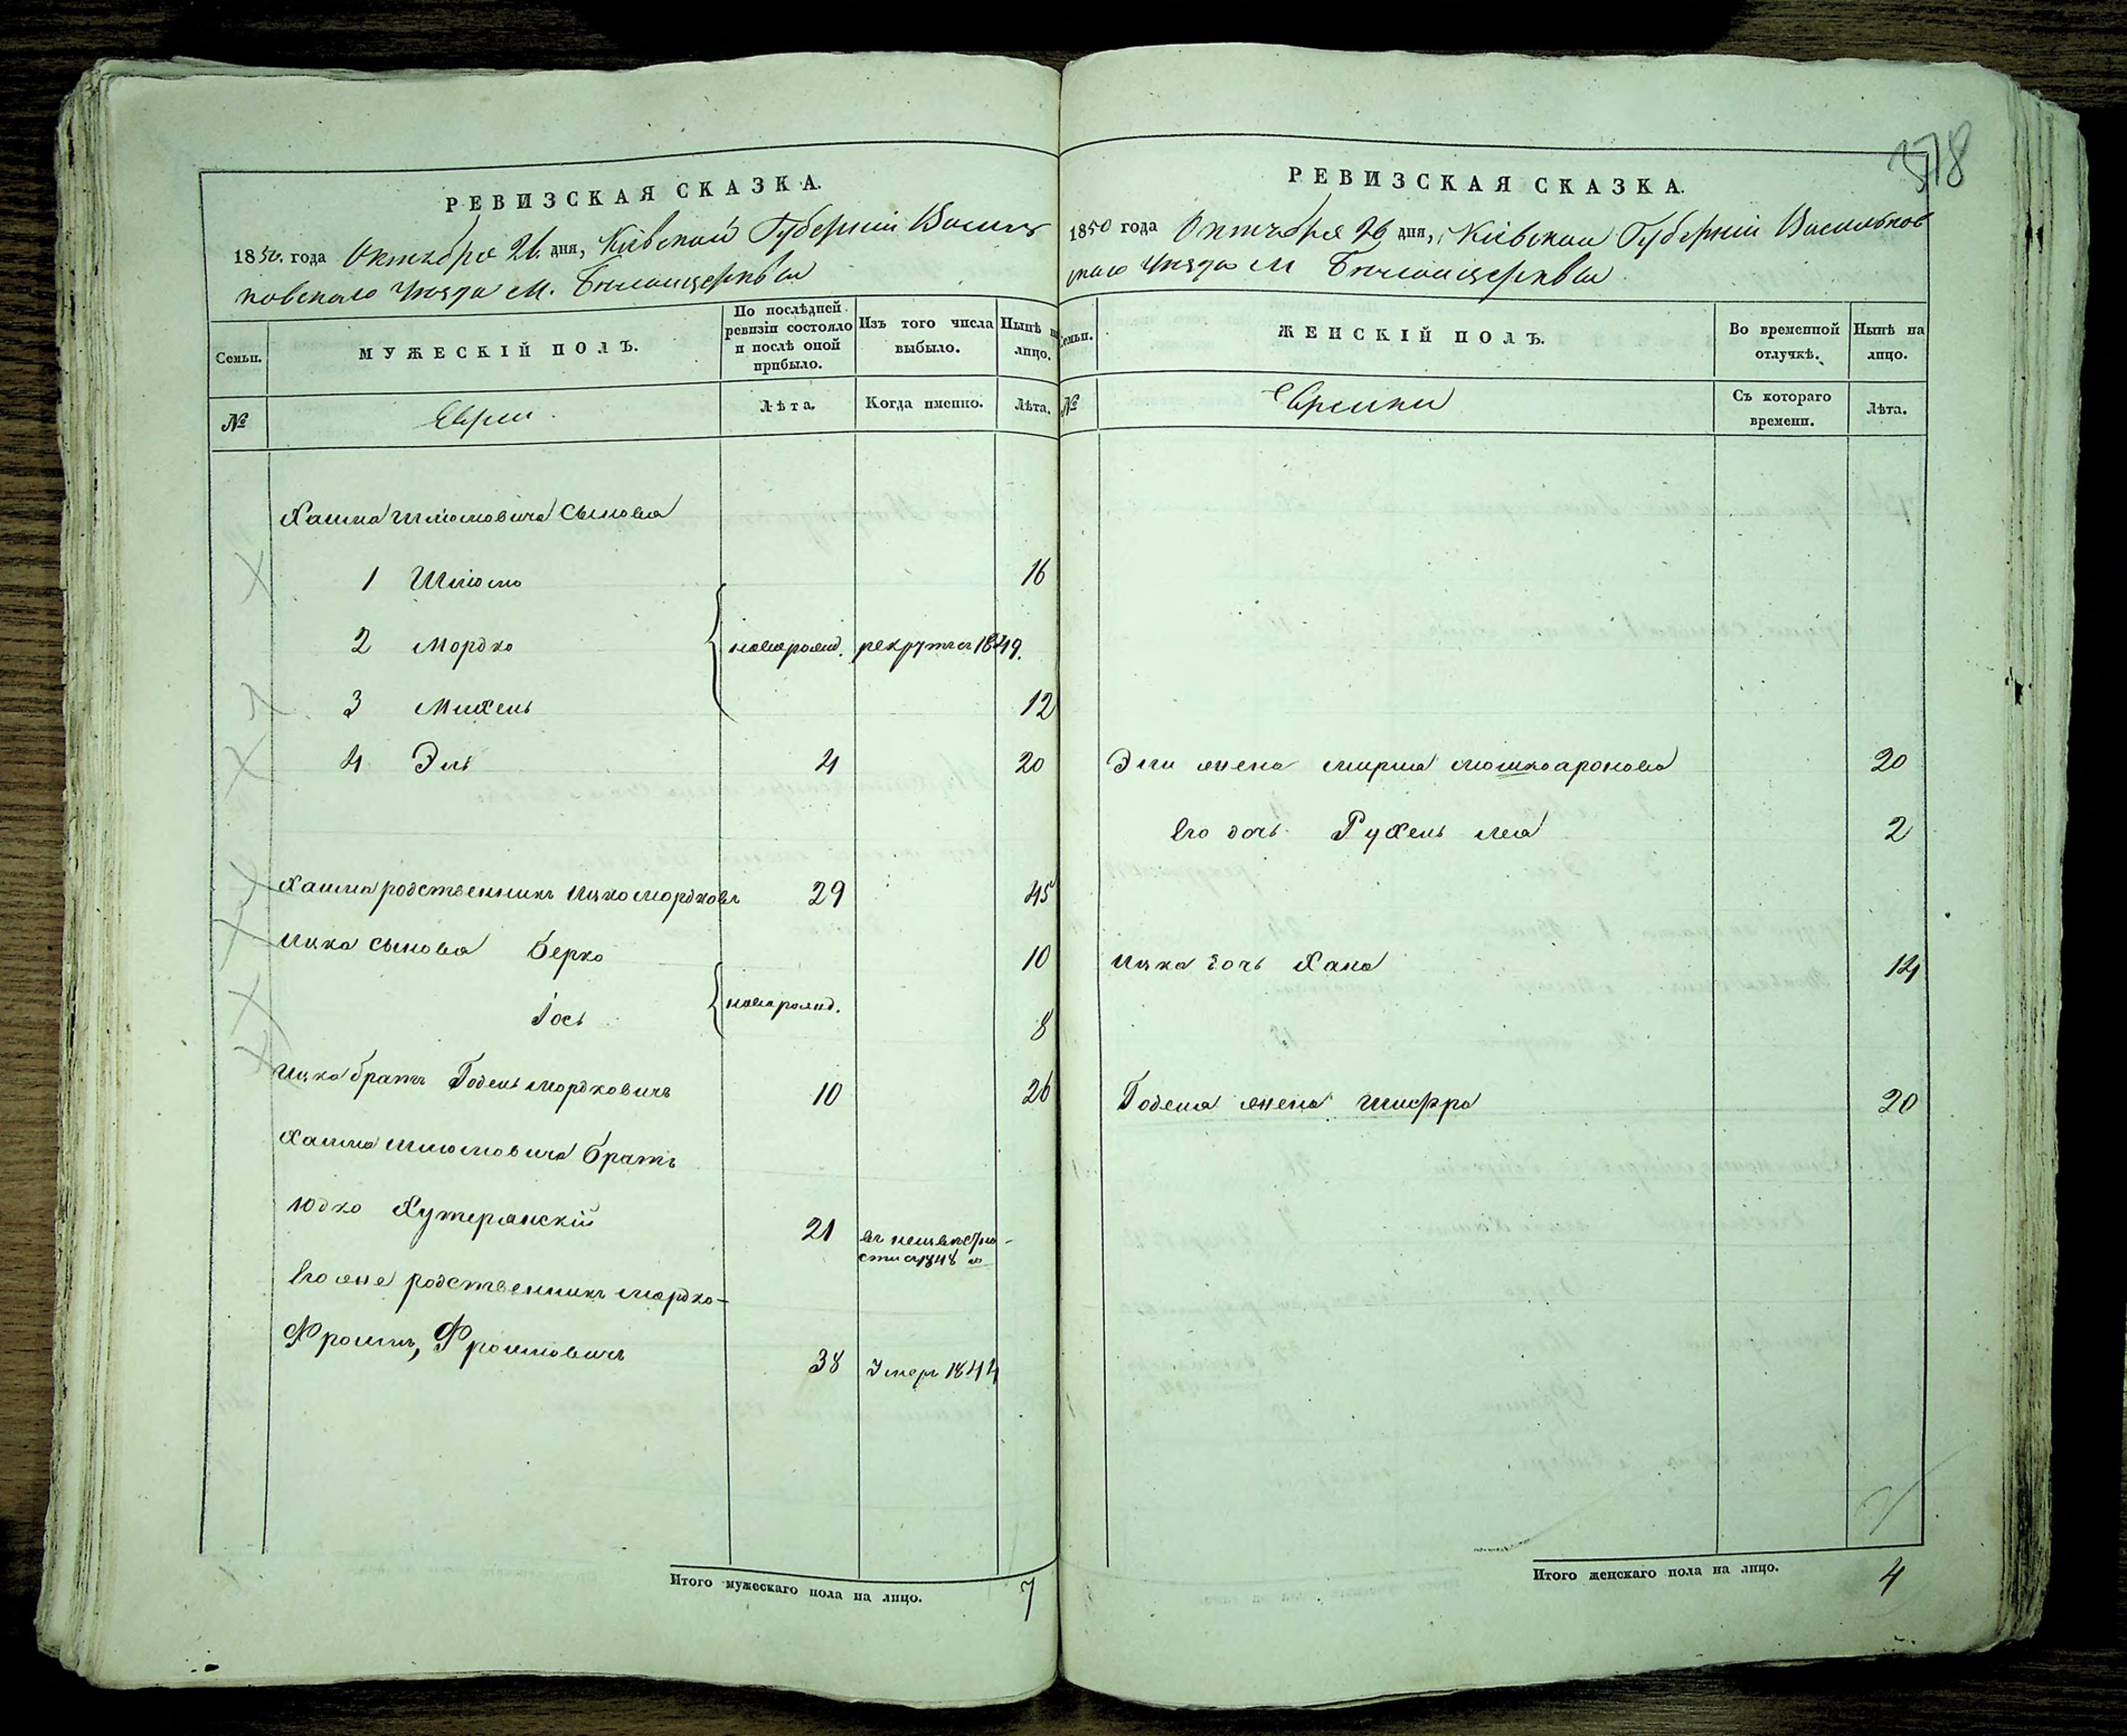 378
РЕВИЗСКАЯ СКАЗКА.
1850 года Октября 26 дня, Кіевской Губерніи Василь
ковскаго Уѣзда М. Бѣлойцеркви
Семьи.
МУЖЕСКІЙ ПОЛЪ.
По послѣдней ревизіи состояло и послѣ оной прибыло.
Изъ того числа выбыло.
Нынѣ на лицо.
№
Евреи.
Лѣта.
Когда именно.
Лѣта.
Хаима Шліомовича сыновья
1 Шліомо 16
2 Мордко новорожд. рекрутъ 1849.
3 Михель 12
4 Эль 4 20
Хаима родственникъ Ицко Мордковъ 29 45
Ицка сыновья Берко 10
Іось новорожд. 8
Ицка братъ Годель Мордковичъ 10 26
Хаима Шліомовича братъ
Юдко Хутерянскій 21 въ неизвѣстно-
сти съ 1848 го
Его же родственникъ Мордко-
Фроимъ, Фроимовичъ 38 Умеръ 1844
Итого мужескаго пола на лицо. 7
РЕВИЗСКАЯ СКАЗКА.
1850 года Октября 26 дня, Кіевской Губерніи Васильков
скаго Уѣзда М Бѣлойцеркви
Семьи.
ЖЕНСКІЙ ПОЛЪ.
Во временной отлучкѣ.
Нынѣ на лицо.
№
Еврейки
Съ котораго времени.
Лѣта.
Эли жена Мирля Мошкоаронова 20
Его дочь Рухель Лея 2
Ицка дочь Хана 14
Годеля жена Шифра 20
Итого женскаго пола на лицо. 4